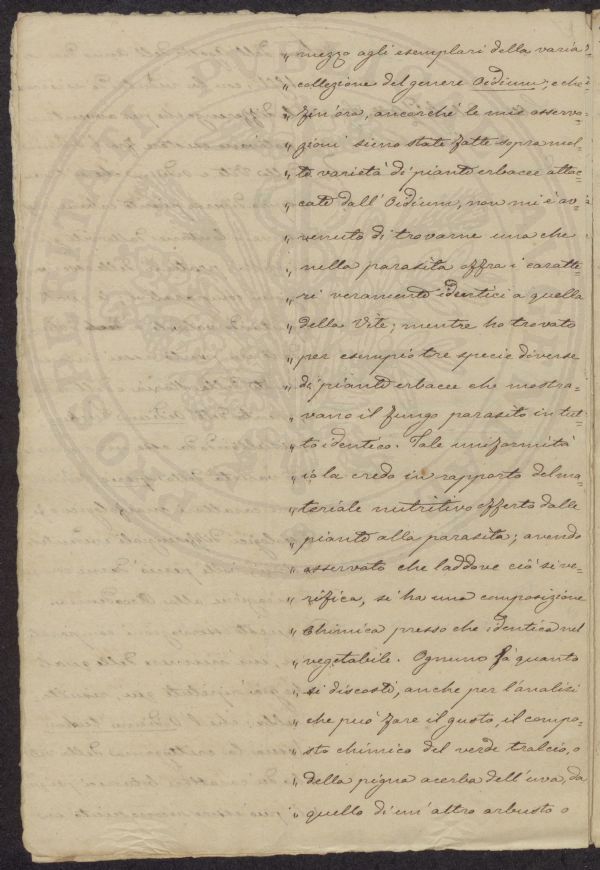 „ mezzo agli esemplari della varia
„ collezione del genere Oidium; e che
„ fin'ora, ancorché le mie osserva-
„ zioni sieno state fatte sopra mol-
„ te varietà di piante erbacee attac-
„ cate dall'Oidium, non mi è av-
„ venuto di trovarne una che
„ nella parasita offra i caratte-
„ ri veramente identici a quella
„ della Vite; mentre ho trovato
„ per esempio tre specie diverse
„ di piante erbacee che mostra-
„ vano il fungo parasito in tut-
„ to identico. Tale uniformità
„ io la credo in rapporto del ma-
„ teriale nutritivo offerto dalle
„ piante alla parasita; avendo
„ osservato che laddove ciò si ve-
„ rifica, si ha una composizione
„ chimica presso che identica nel
„ vegetabile. Ognuno sà quanto
„ si discosti, anche per l'analisi
„ che può fare il gusto, il compo-
„ sto chimico del verde tralcio, o
„ della pigna acerba dell'uva, da
„ quello di un'altro arbusto o